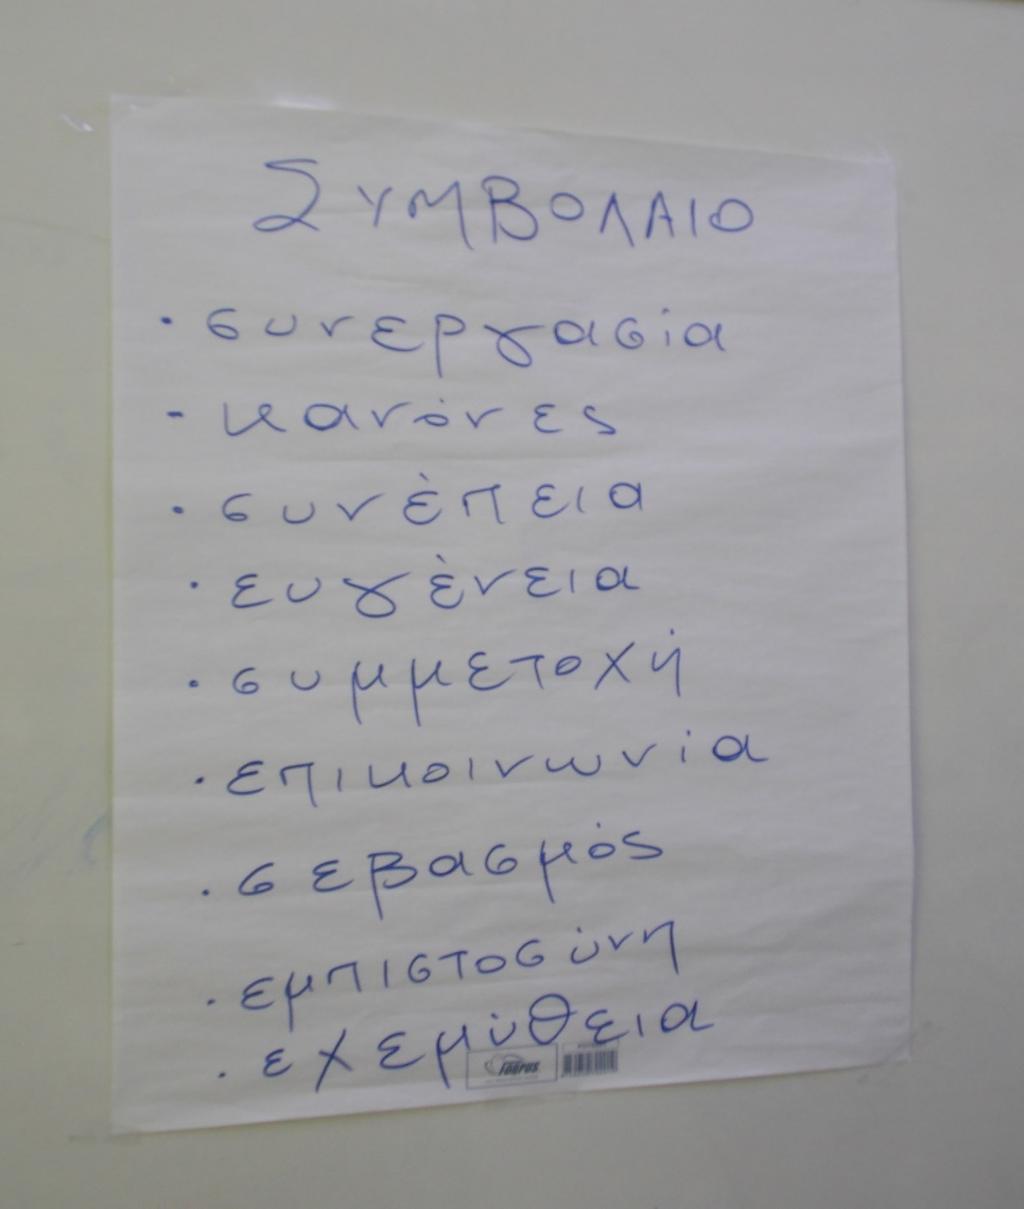 ΣΥΜΒΟΛΑΙΟ
· συνεργασία
- κανόνες
· συνέπεια
· ευγένεια
· συμμετοχή
· επικοινωνία
· σεβασμός
· εμπιστοσύνη
· εχεμύθεια